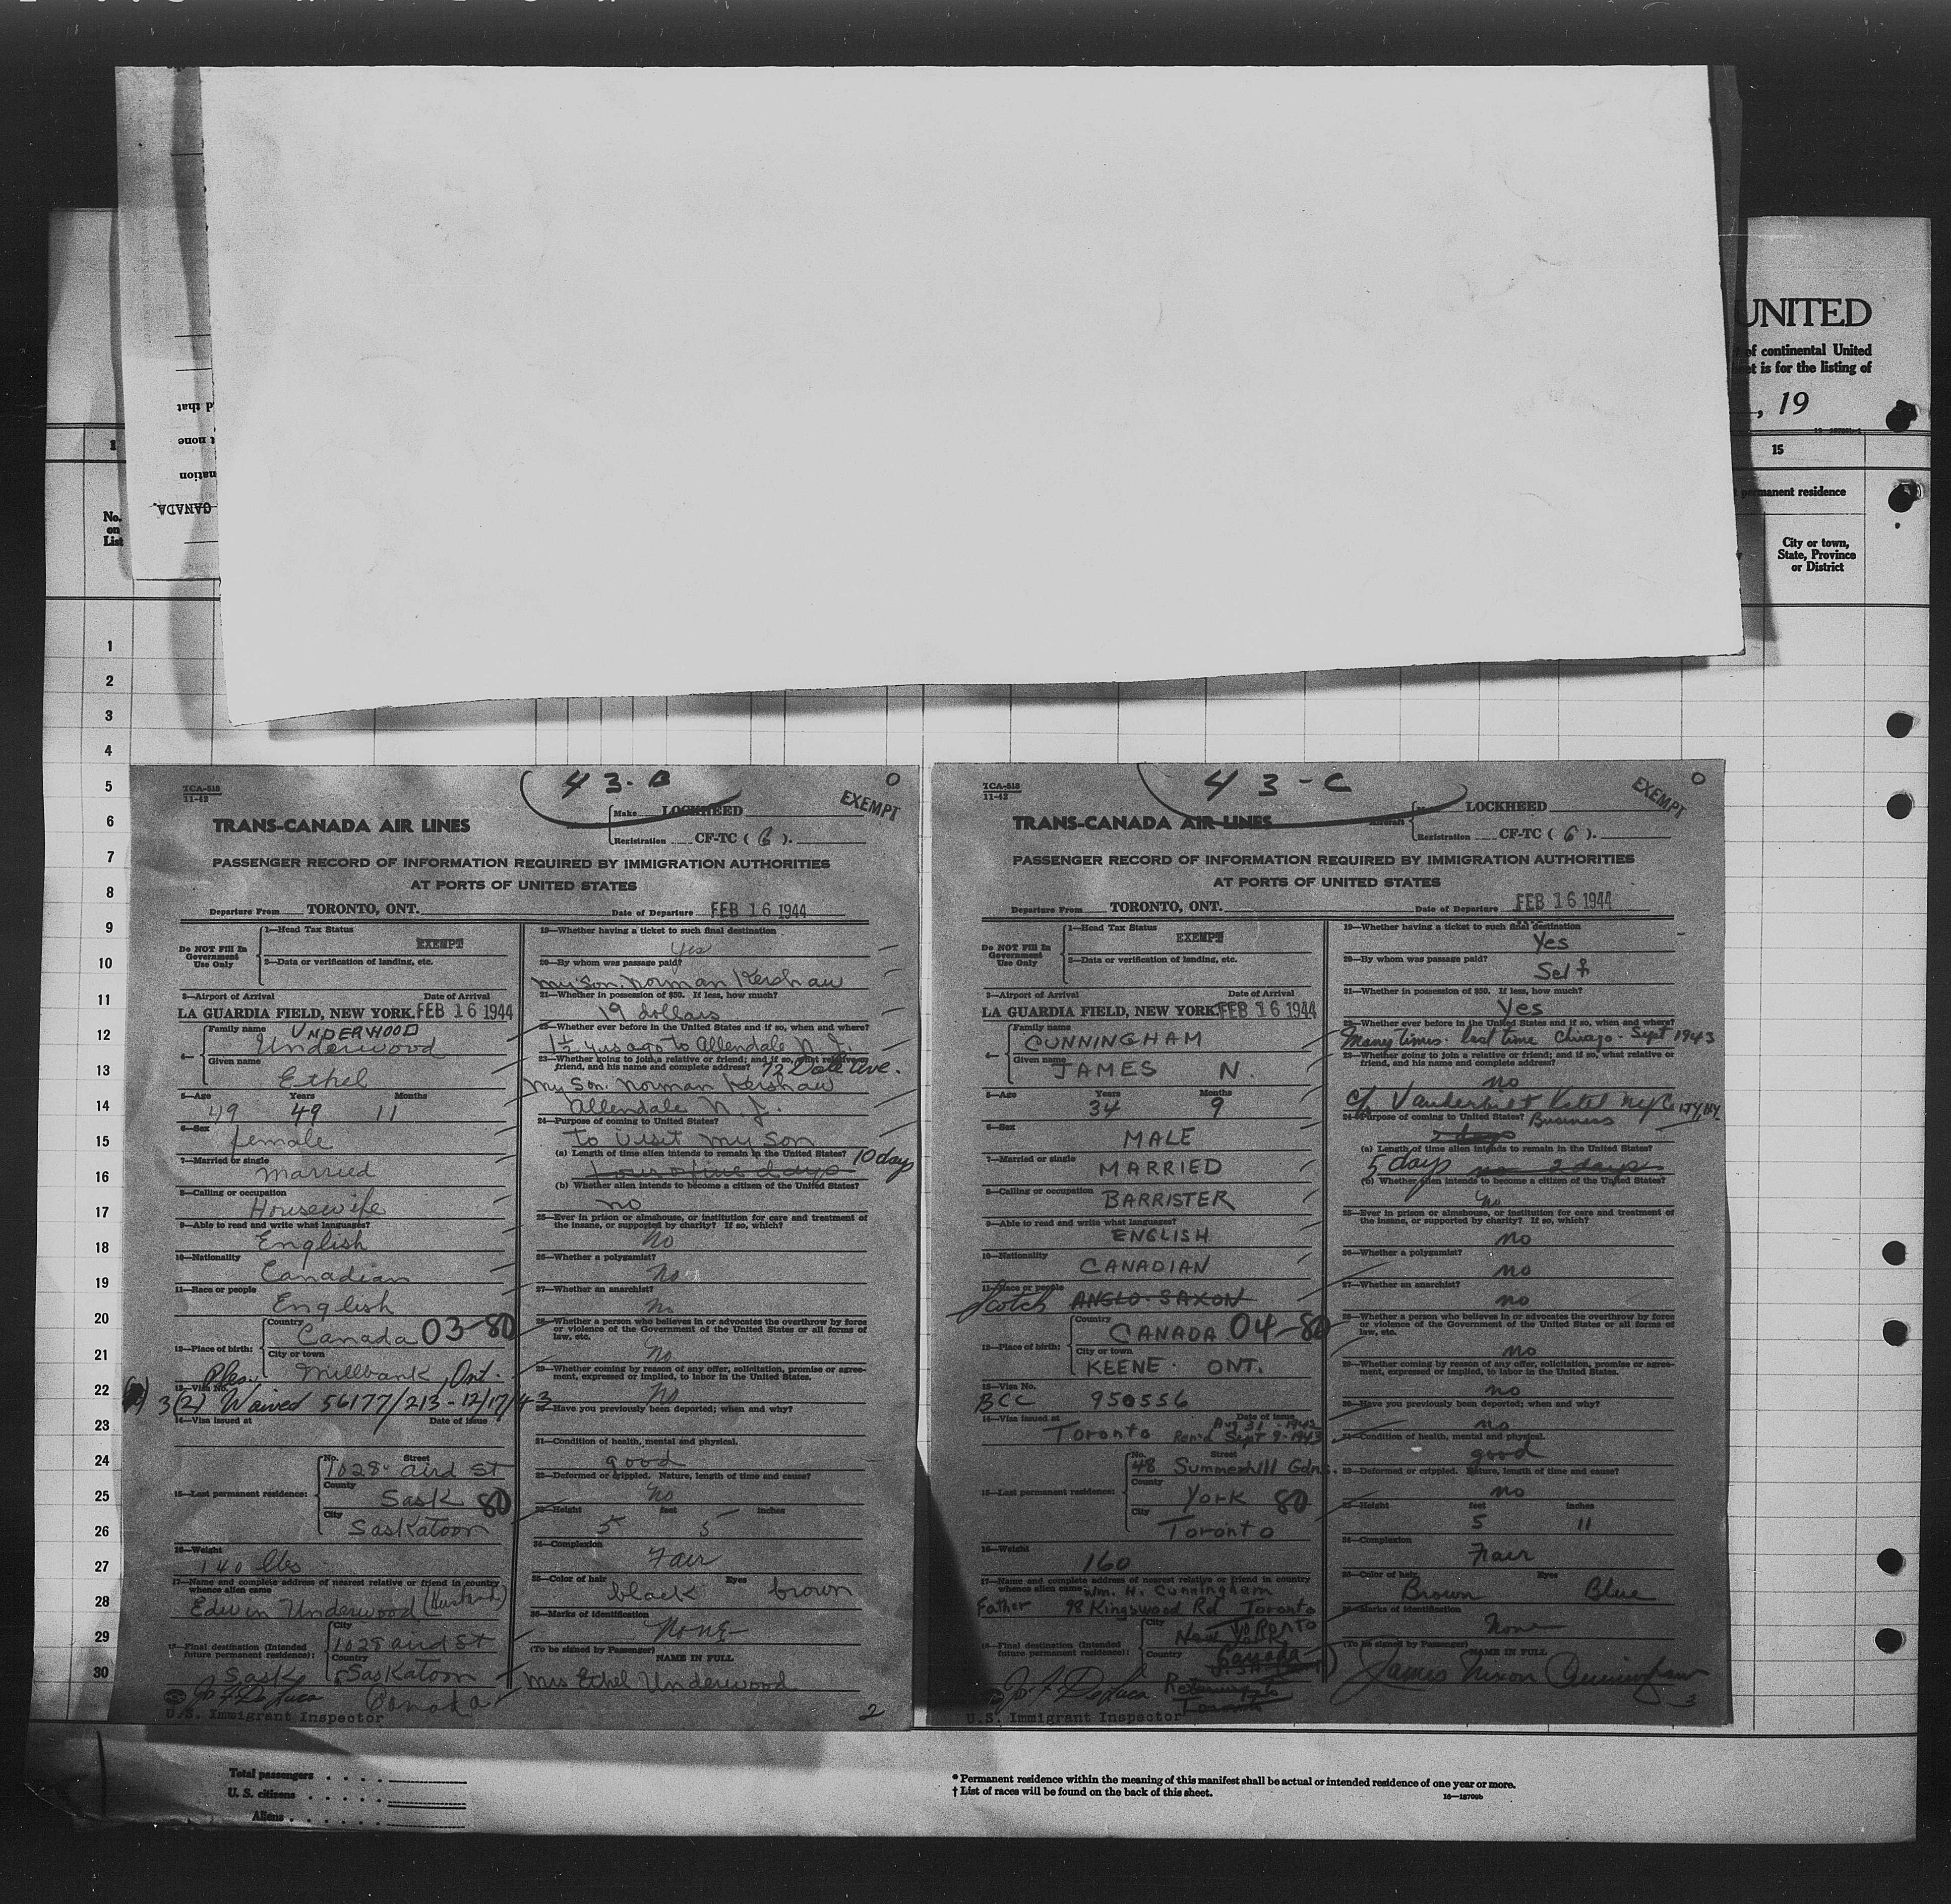 UNITED
of continental United
is for the listing of
, 19
15
permanent residence
City or town,
State, Province
or District
CANADA.
No.
on
List
1
2
3
4
5
6
7
8
9
10
11
12
13
14
15
16
17
18
19
20
21
22
23
24
25
26
27
28
29
30
43-B
O
TCA-518
11-42
EXEMPT
Make LOCKHEED
TRANS-CANADA AIR LINES
Registration CF-TC ( 6 ).
PASSENGER RECORD OF INFORMATION REQUIRED BY IMMIGRATION AUTHORITIES
AT PORTS OF UNITED STATES
Departure From TORONTO, ONT. Date of Departure FEB 16 1944
Do NOT Fill In
Government
Use Only
1—Head Tax Status
EXEMPT
2—Data or verification of landing, etc.
3—Airport of Arrival Date of Arrival
LA GUARDIA FIELD, NEW YORK. FEB 16 1944
4— Family name UNDERWOOD
Underwood
Given name
Ethel
5—Age Years Months
49 49 11
6—Sex
female
7—Married or single
Married
8—Calling or occupation
Housewife
9—Able to read and write what languages?
English
10—Nationality
Canadian
11—Race or people
English
12—Place of birth:
Country
Canada 03-80
City or town
Millbank, Ont.
13—Visa No.
3(2) Waived 56177/213-12/17/43
14—Visa issued at Date of issue
15—Last permanent residence:
No. Street
1028 aird St
County
Sask 80
City
Saskatoon
16—Weight
140 lbs
17—Name and complete address of nearest relative or friend in country
whence alien came
Edwin Underwood (Husband)
18—Final destination (Intended
future permanent residence):
City
1028 aird St
Country
Sask Saskatoon
Canada
Jo. F. De Luca
U.S. Immigrant Inspector
19—Whether having a ticket to such final destination
yes
20—By whom was passage paid?
my Son. Norman Kershaw
21—Whether in possession of $50. If less, how much?
19 dollars
22—Whether ever before in the United States and if so, when and where?
1½ yrs ago to Allendale N. J.
23—Whether going to join a relative or friend; and if so, what relative or
friend, and his name and complete address? 72 Dale Ave.
My Son. Norman Kershaw
Allendale N. J.
24—Purpose of coming to United States?
to visit my son
(a) Length of time alien intends to remain in the United States? 10 days
four or five days
(b) Whether alien intends to become a citizen of the United States?
no
25—Ever in prison or almshouse, or institution for care and treatment of
the insane, or supported by charity? If so, which?
No
26—Whether a polygamist?
No
27—Whether an anarchist?
No
28—Whether a person who believes in or advocates the overthrow by force
or violence of the Government of the United States or all forms of
law, etc.
No
29—Whether coming by reason of any offer, solicitation, promise or agree-
ment, expressed or implied, to labor in the United States.
No
30—Have you previously been deported; when and why?
31—Condition of health, mental and physical.
good
32—Deformed or crippled. Nature, length of time and cause?
No
33—Height feet inches
5 5
34—Complexion
Fair
35—Color of hair Eyes
black brown
36—Marks of identification
None
(To be signed by Passenger) NAME IN FULL
Mrs Ethel Underwood
2
43-C
O
TCA-518
11-42
EXEMPT
LOCKHEED
TRANS-CANADA AIR LINES
Aircraft
Registration CF-TC ( 6 ).
PASSENGER RECORD OF INFORMATION REQUIRED BY IMMIGRATION AUTHORITIES
AT PORTS OF UNITED STATES
Departure From TORONTO, ONT. Date of Departure FEB 16 1944
Do NOT Fill In
Government
Use Only
1—Head Tax Status
EXEMPT
2—Data or verification of landing, etc.
3—Airport of Arrival Date of Arrival
LA GUARDIA FIELD, NEW YORK. FEB 16 1944
4— Family name
CUNNINGHAM
Given name
JAMES N.
5—Age Years Months
34 9
6—Sex
MALE
7—Married or single
MARRIED
8—Calling or occupation
BARRISTER
9—Able to read and write what languages?
ENGLISH
10—Nationality
CANADIAN
11—Race or people
Scotch ANGLO-SAXON
12—Place of birth:
Country
CANADA 04-80
City or town
KEENE. ONT.
13—Visa No.
BCC 950556
14—Visa issued at Date of issue
Aug 31 - 1942
Toronto Ren'd Sept 9-1943
15—Last permanent residence:
No. Street
48 Summerhill Gdns.
County
York 80
City
Toronto
16—Weight
160
17—Name and complete address of nearest relative or friend in country
whence alien came Wm. H. Cunningham
Father 98 Kingswood Rd Toronto
18—Final destination (Intended
future permanent residence):
City
New York Toronto
Country
Canada
Returning to
Toronto
Jo. F. De Luca
U.S. Immigrant Inspector
19—Whether having a ticket to such final destination
Yes
20—By whom was passage paid?
Self
21—Whether in possession of $50. If less, how much?
Yes
22—Whether ever before in the United States and if so, when and where?
Many times. last time Chicago - Sept 1943
23—Whether going to join a relative or friend; and if so, what relative or
friend, and his name and complete address?
no
c/o Vanderbilt Hotel NY City, NY.
24—Purpose of coming to United States? Business
2 days
(a) Length of time alien intends to remain in the United States?
5 days no 2 days
(b) Whether alien intends to become a citizen of the United States?
No
25—Ever in prison or almshouse, or institution for care and treatment of
the insane, or supported by charity? If so, which?
no
26—Whether a polygamist?
no
27—Whether an anarchist?
no
28—Whether a person who believes in or advocates the overthrow by force
or violence of the Government of the United States or all forms of
law, etc.
no
29—Whether coming by reason of any offer, solicitation, promise or agree-
ment, expressed or implied, to labor in the United States.
no
30—Have you previously been deported; when and why?
no
31—Condition of health, mental and physical.
good
32—Deformed or crippled. Nature, length of time and cause?
no
33—Height feet inches
5 11
34—Complexion
Fair
35—Color of hair Eyes
Brown Blue
36—Marks of identification
None
(To be signed by Passenger) NAME IN FULL
James Nixon Cunningham
3
Total passengers . . . .
U. S. citizens . . . . .
Aliens . . . . . .
* Permanent residence within the meaning of this manifest shall be actual or intended residence of one year or more.
† List of races will be found on the back of this sheet.